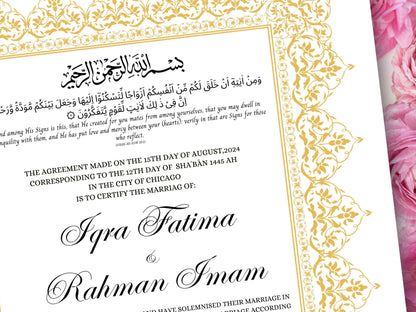 بسم الله الرحمن الرحيم
وَمِنْ آيَاتِهِ أَنْ خَلَقَ لَكُم مِّنْ أَنفُسِكُمْ أَزْوَاجًا لِّتَسْكُنُوا إِلَيْهَا وَجَعَلَ بَيْنَكُم مَّوَدَّةً
إِنَّ فِي ذَٰلِكَ لَآيَاتٍ لِّقَوْمٍ يَتَفَكَّرُونَ
And among His Signs is this, that He created for you mates from among yourselves, that you may dwell in
tranquility with them, and He has put love and mercy between your (hearts): verily in that are Signs for those
who reflect.
THE AGREEMENT MADE ON THE 15TH DAY OF AUGUST,2024
CORRESPONDING TO THE 12TH DAY OF SHA'BĀN 1445 AH
IN THE CITY OF CHICAGO
IS TO CERTIFY THE MARRIAG OF:
Iqra Fatima
&
Rahman Imam
AND HAVE SOLEMNISED THEIR MARRIAGE IN
MARRIAGE ACCORDING